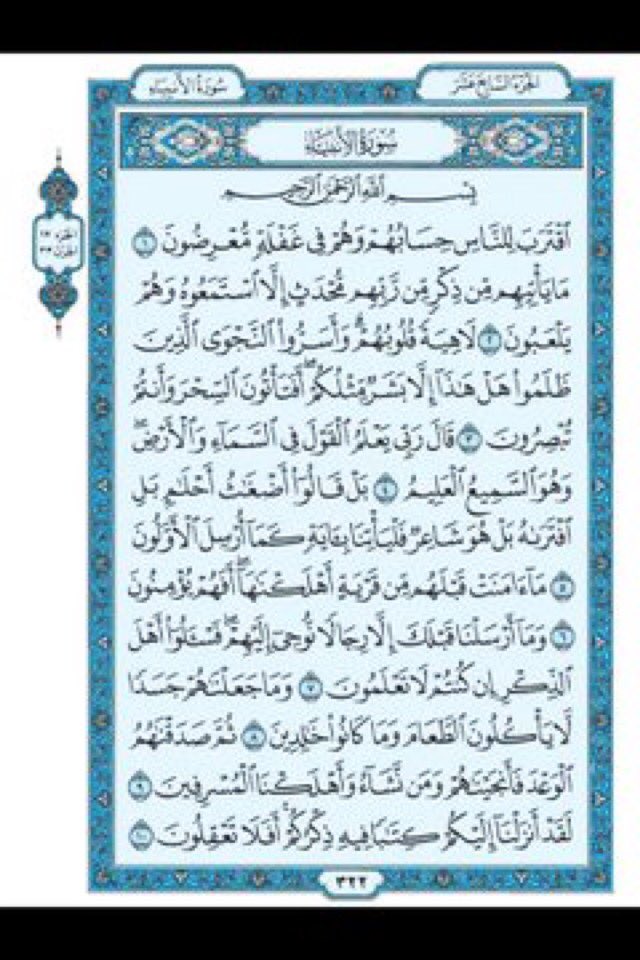 الجزء السابع عشر
سورة الأنبياء
سُورَةُ الأَنْبِيَاءِ
بِسْمِ اللَّهِ الرَّحْمَٰنِ الرَّحِيمِ
اقْتَرَبَ لِلنَّاسِ حِسَابُهُمْ وَهُمْ فِي غَفْلَةٍ مُّعْرِضُونَ ١
مَا يَأْتِيهِم مِّن ذِكْرٍ مِّن رَّبِّهِم مُّحْدَثٍ إِلَّا اسْتَمَعُوهُ وَهُمْ
يَلْعَبُونَ ٢ لَاهِيَةً قُلُوبُهُمْ ۗ وَأَسَرُّوا النَّجْوَى الَّذِينَ
ظَلَمُوا هَلْ هَٰذَا إِلَّا بَشَرٌ مِّثْلُكُمْ ۖ أَفَتَأْتُونَ السِّحْرَ وَأَنتُمْ
تُبْصِرُونَ ٣ قَالَ رَبِّي يَعْلَمُ الْقَوْلَ فِي السَّمَاءِ وَالْأَرْضِ ۖ
وَهُوَ السَّمِيعُ الْعَلِيمُ ٤ بَلْ قَالُوا أَضْغَٰثُ أَحْلَٰمٍ بَلِ
افْتَرَىٰهُ بَلْ هُوَ شَاعِرٌ فَلْيَأْتِنَا بِـَٔايَةٍ كَمَا أُرْسِلَ الْأَوَّلُونَ
٥ مَا ءَامَنَتْ قَبْلَهُم مِّن قَرْيَةٍ أَهْلَكْنَٰهَا ۖ أَفَهُمْ يُؤْمِنُونَ
٦ وَمَا أَرْسَلْنَا قَبْلَكَ إِلَّا رِجَالًا نُّوحِي إِلَيْهِمْ ۖ فَسْـَٔلُوا أَهْلَ
الذِّكْرِ إِن كُنتُمْ لَا تَعْلَمُونَ ٧ وَمَا جَعَلْنَٰهُمْ جَسَدًا
لَّا يَأْكُلُونَ الطَّعَامَ وَمَا كَانُوا خَٰلِدِينَ ٨ ثُمَّ صَدَقْنَٰهُمُ
الْوَعْدَ فَأَنجَيْنَٰهُمْ وَمَن نَّشَاءُ وَأَهْلَكْنَا الْمُسْرِفِينَ ٩
لَقَدْ أَنزَلْنَا إِلَيْكُمْ كِتَٰبًا فِيهِ ذِكْرُكُمْ ۖ أَفَلَا تَعْقِلُونَ ١٠
٣٢٢